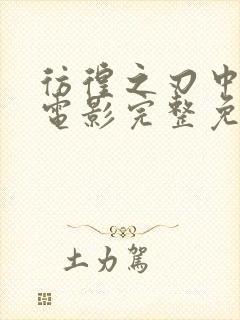 彷徨之刃中
电影完整免
土力驾